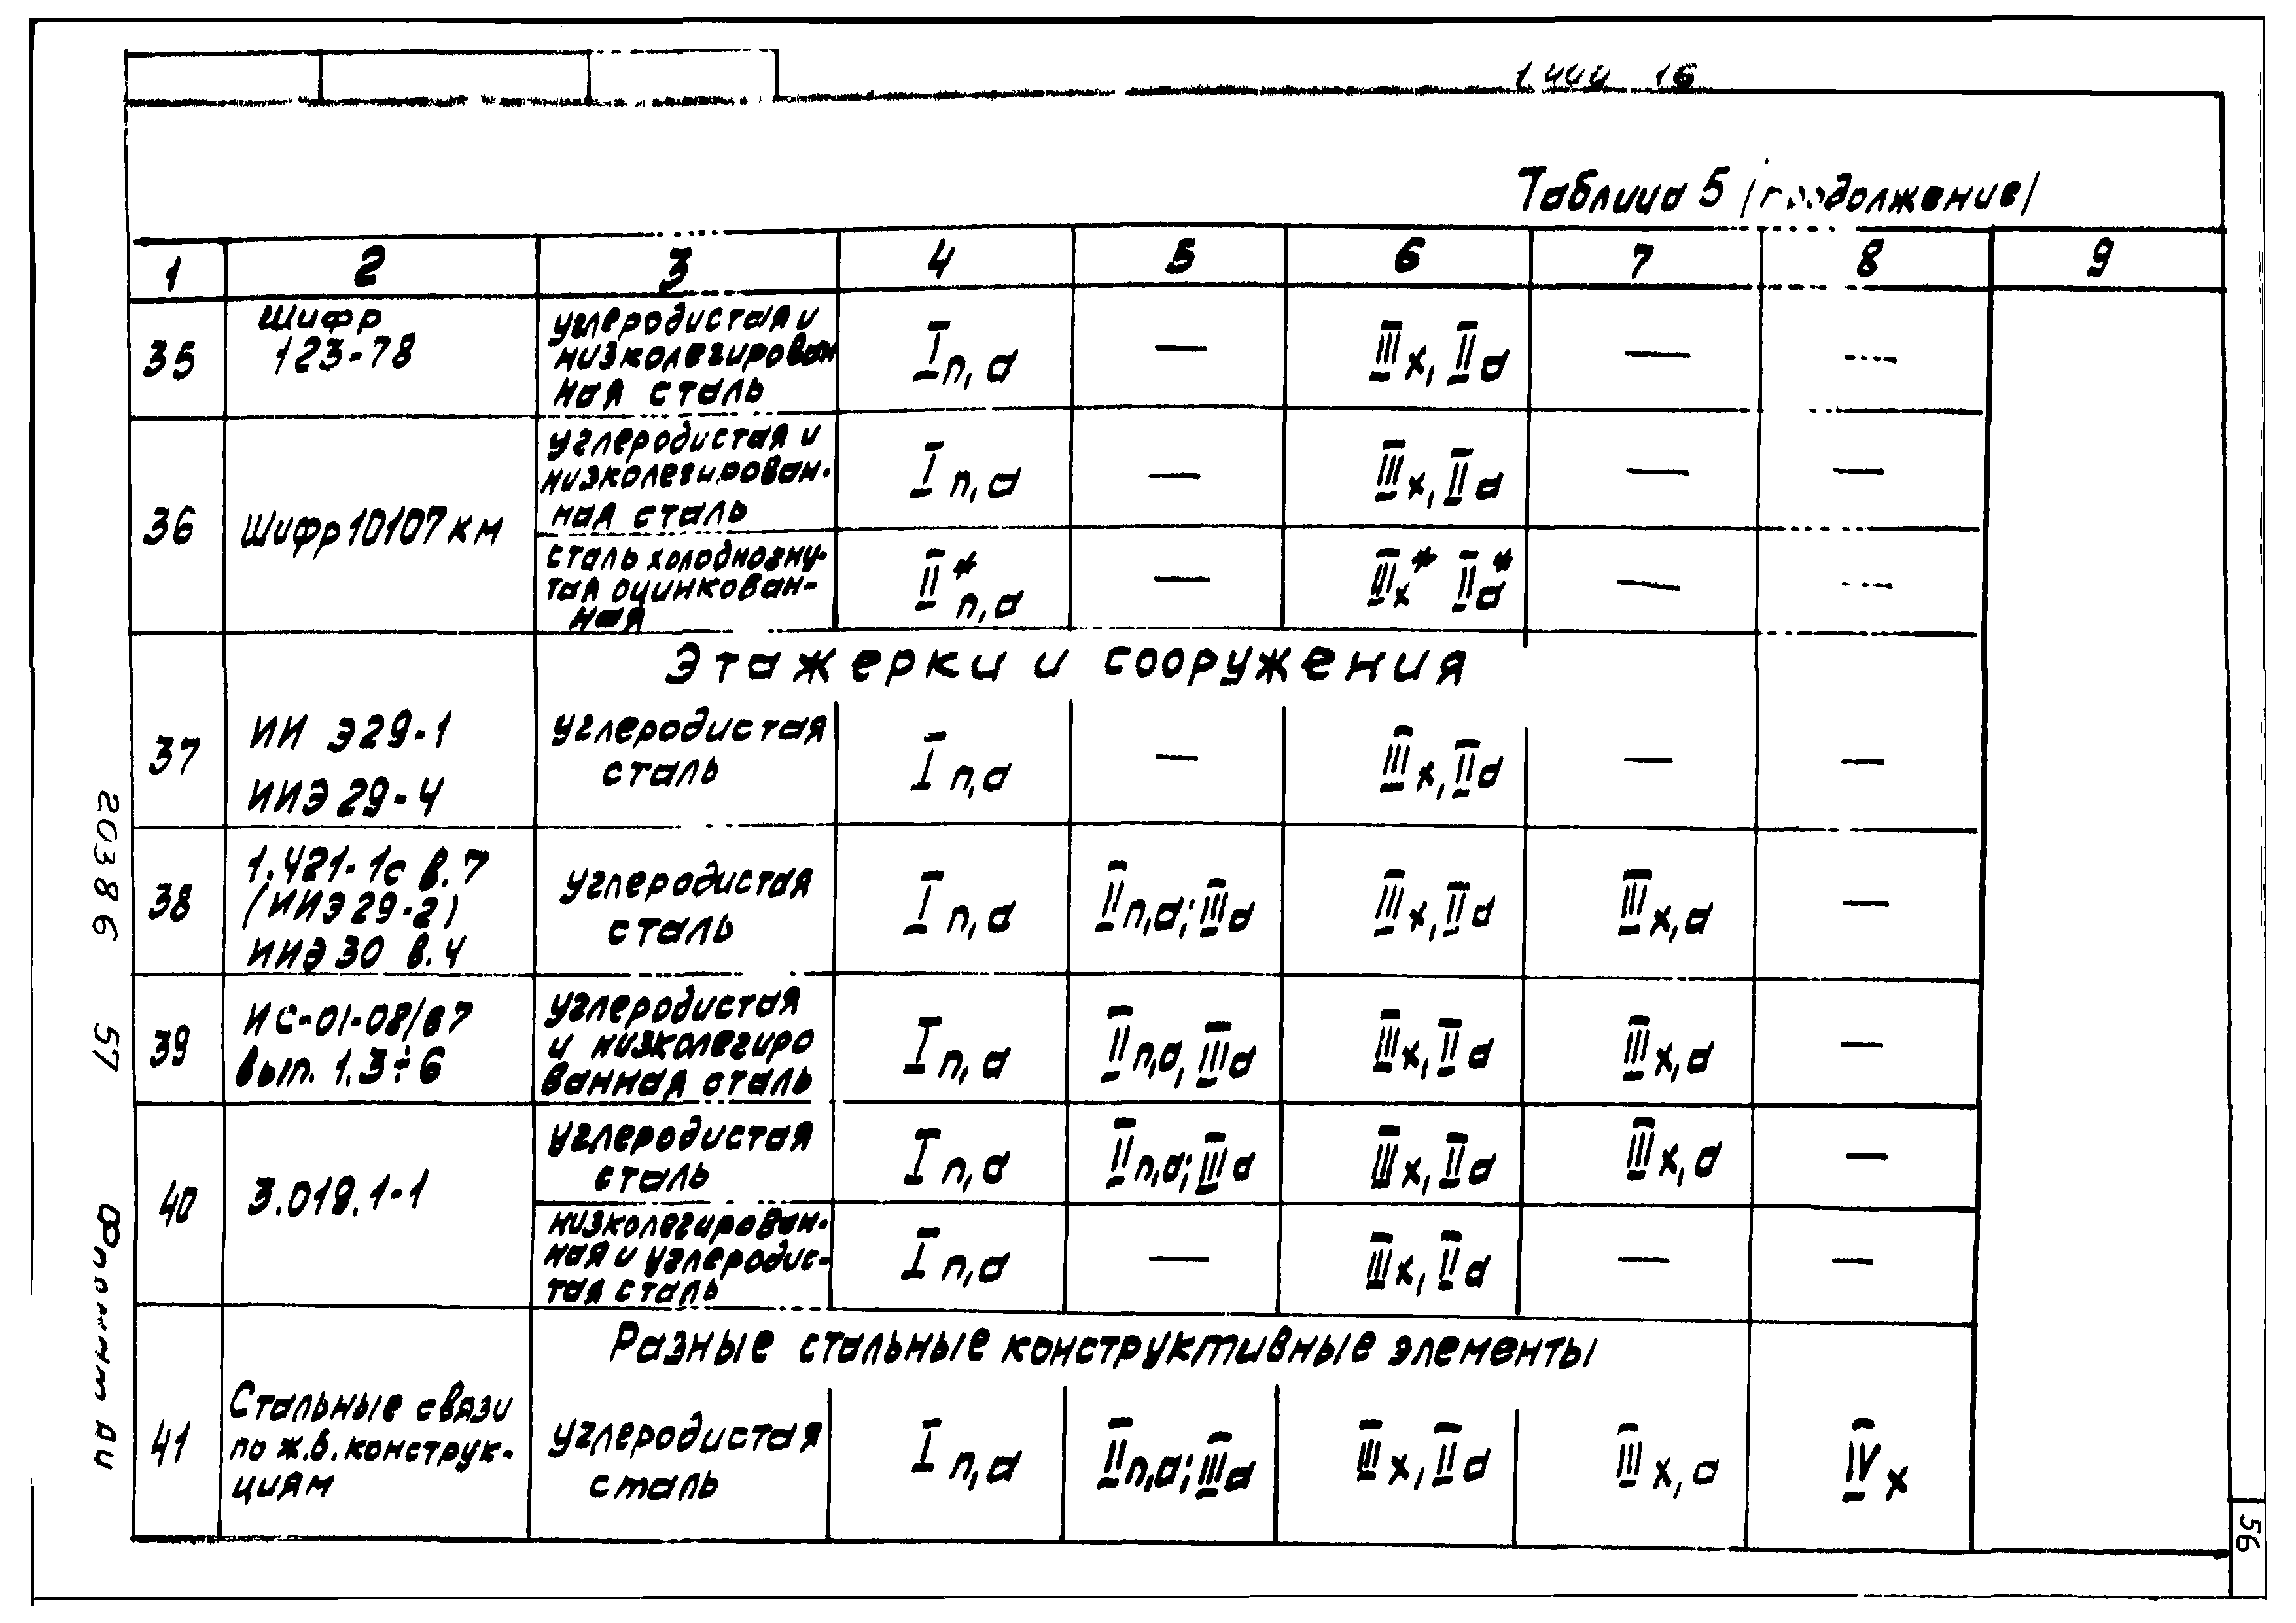 1.400 16
Таблица 5 /продолжение/
1 2 3 4 5 6 7 8 9
35 Шифр 123-78 углеродистая и низколегирован ная сталь I п, а — III х, II а — —
36 Шифр 10107 км углеродистая и низколегирован- ная сталь I п, а — III х, II а — —
сталь холодногну- тая оцинкован- ная II* п, а — III* х II* а — —
Этажерки и сооружения
37 ИИ Э29-1 ИИЭ 29-4 углеродистая сталь I п, а — III х, II а — —
38 1.421-1с в.7 (ИИЭ29-2) ИИЭ 30 в.4 углеродистая сталь I п, а II п, а; III а III х, II а III х, а —
39 ИС-01-08/67 вып. 1.3÷6 углеродистая и низколегиро ванная сталь I п, а II п, а, III а III х, II а III х, а —
40 3.019.1-1 углеродистая сталь I п, а II п, а; III а III х, II а III х, а —
низколегирован- ная и углеродис- тая сталь I п, а — III х, II а — —
Разные стальные конструктивные элементы
41 Стальные связи по ж.б. конструк- циям углеродистая сталь I п, а II п, а; III а III х, II а III х, а IV х
20386 57
56